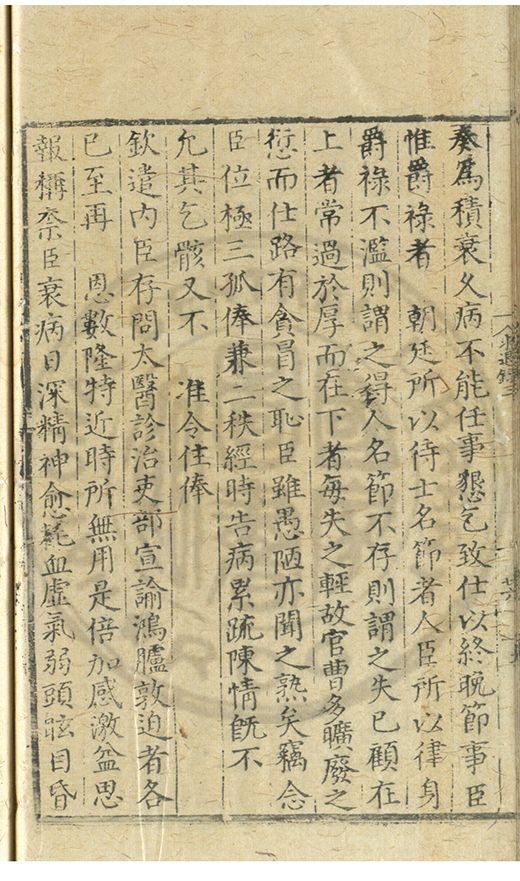 奏爲積衰久病不能任事懇乞致仕以終晚節事臣
惟爵祿者　朝廷所以待士名節者人臣所以律身
爵祿不濫則謂之得人名節不存則謂之失已顧在
上者常過於厚而在下者每失之輕故官曹多曠廢之
愆而仕路有貪冒之恥臣雖愚陋亦聞之熟矣竊念
臣位極三孤俸兼二秩經時告病累疏陳情旣不
允其乞骸又不　准令住俸
欽遣內臣存問太醫診治吏部宣諭鴻臚敦迫者各
已至再　恩數隆特近時所無用是倍加感激益思
報稱柰臣衰病日深精神愈耗血虛氣弱頭眩目昏